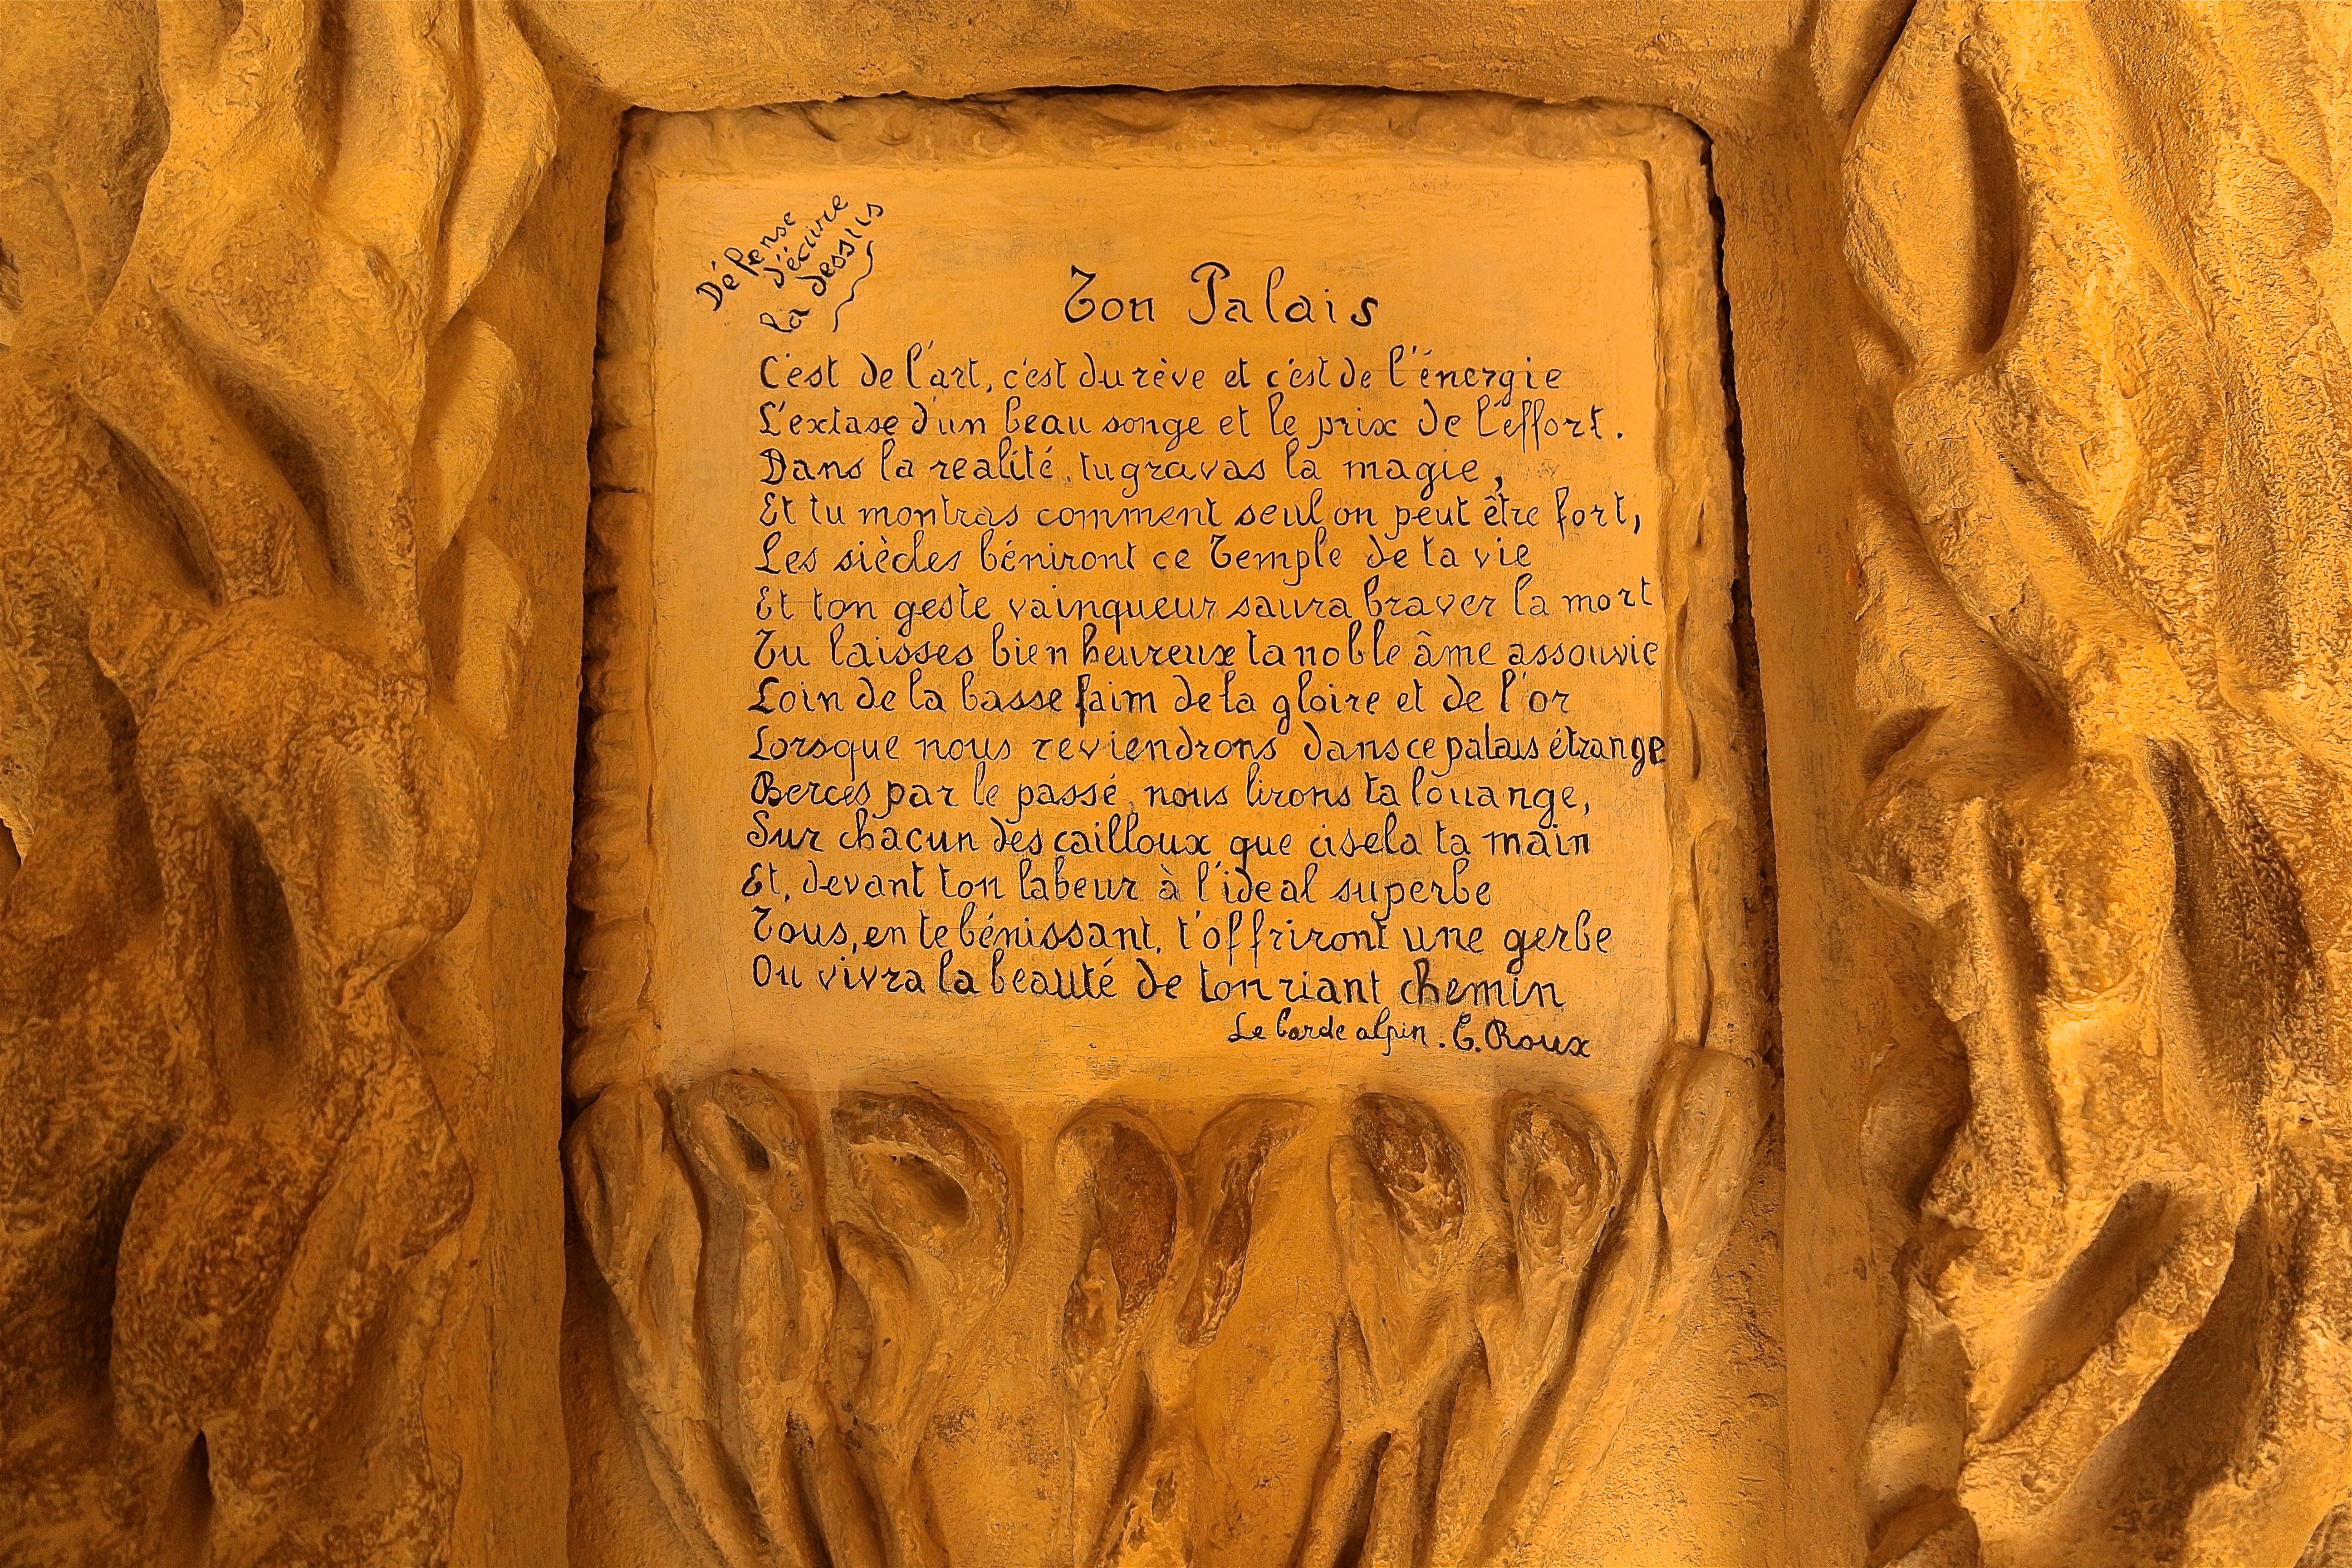 Défense
d'écrire
la dessus
Ton Palais
C'est de l'art, c'est du rêve et c'est de l'énergie
L'extase d'un beau songe et le prix de l'éffort.
Dans la realité, tu gravas la magie,
Et tu montras comment seul on peut être fort,
Les siècles béniront ce Temple de ta vie
Et ton geste vainqueur saura braver la mort
Tu laisses bien heureux ta noble âme assouvie
Loin de la basse faim de la gloire et de l'or
Lorsque nous reviendrons dans ce palais étrange
Bercés par le passé, nous lirons ta louange,
Sur chacun des cailloux que cisela ta main
Et, devant ton labeur à l'ideal superbe
Tous, en te bénissant, t'offriront une gerbe
Ou vivra la beauté de ton riant chemin
Le Barde alpin. E. Roux